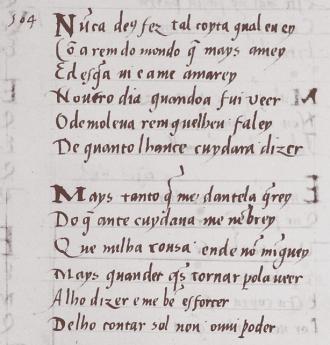 504
Nũca deꝯ fez tal coyta qual eu ey
Cõ a rem do mondo q̄ mays amey
E desq̃a ui e ame amarey
Noutro dia quando a fui veer
O demo leva rem que lheu faley
De quanto lhante cuydara dizer
Mays tanto q̄ me dant ela q̃rey
Do q̄ ante cuydava me nẽbrey
Que nulha cousa ende nõ mĩguey
Mays quandeꝛ q̃s tornar pola veer
A lho dizer e me bẽ esforcer
De lho contar sol non ouui poder